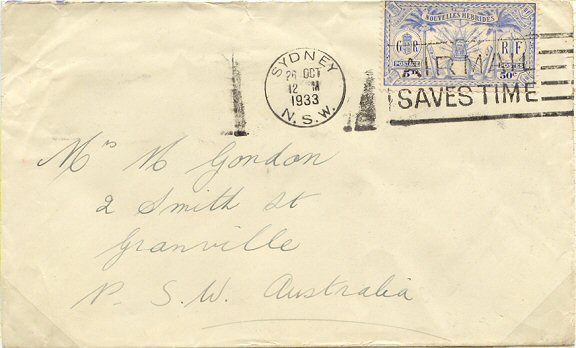 NOUVELLES HEBRIDES
G R R F
POSTAGE POSTES
5d 50c
SYDNEY
26 OCT
12 M
1933
N.S.W.
AIR MAIL
SAVES TIME
Mrs M Gondon
2 Smith St
Granville
N. S. W. Australia